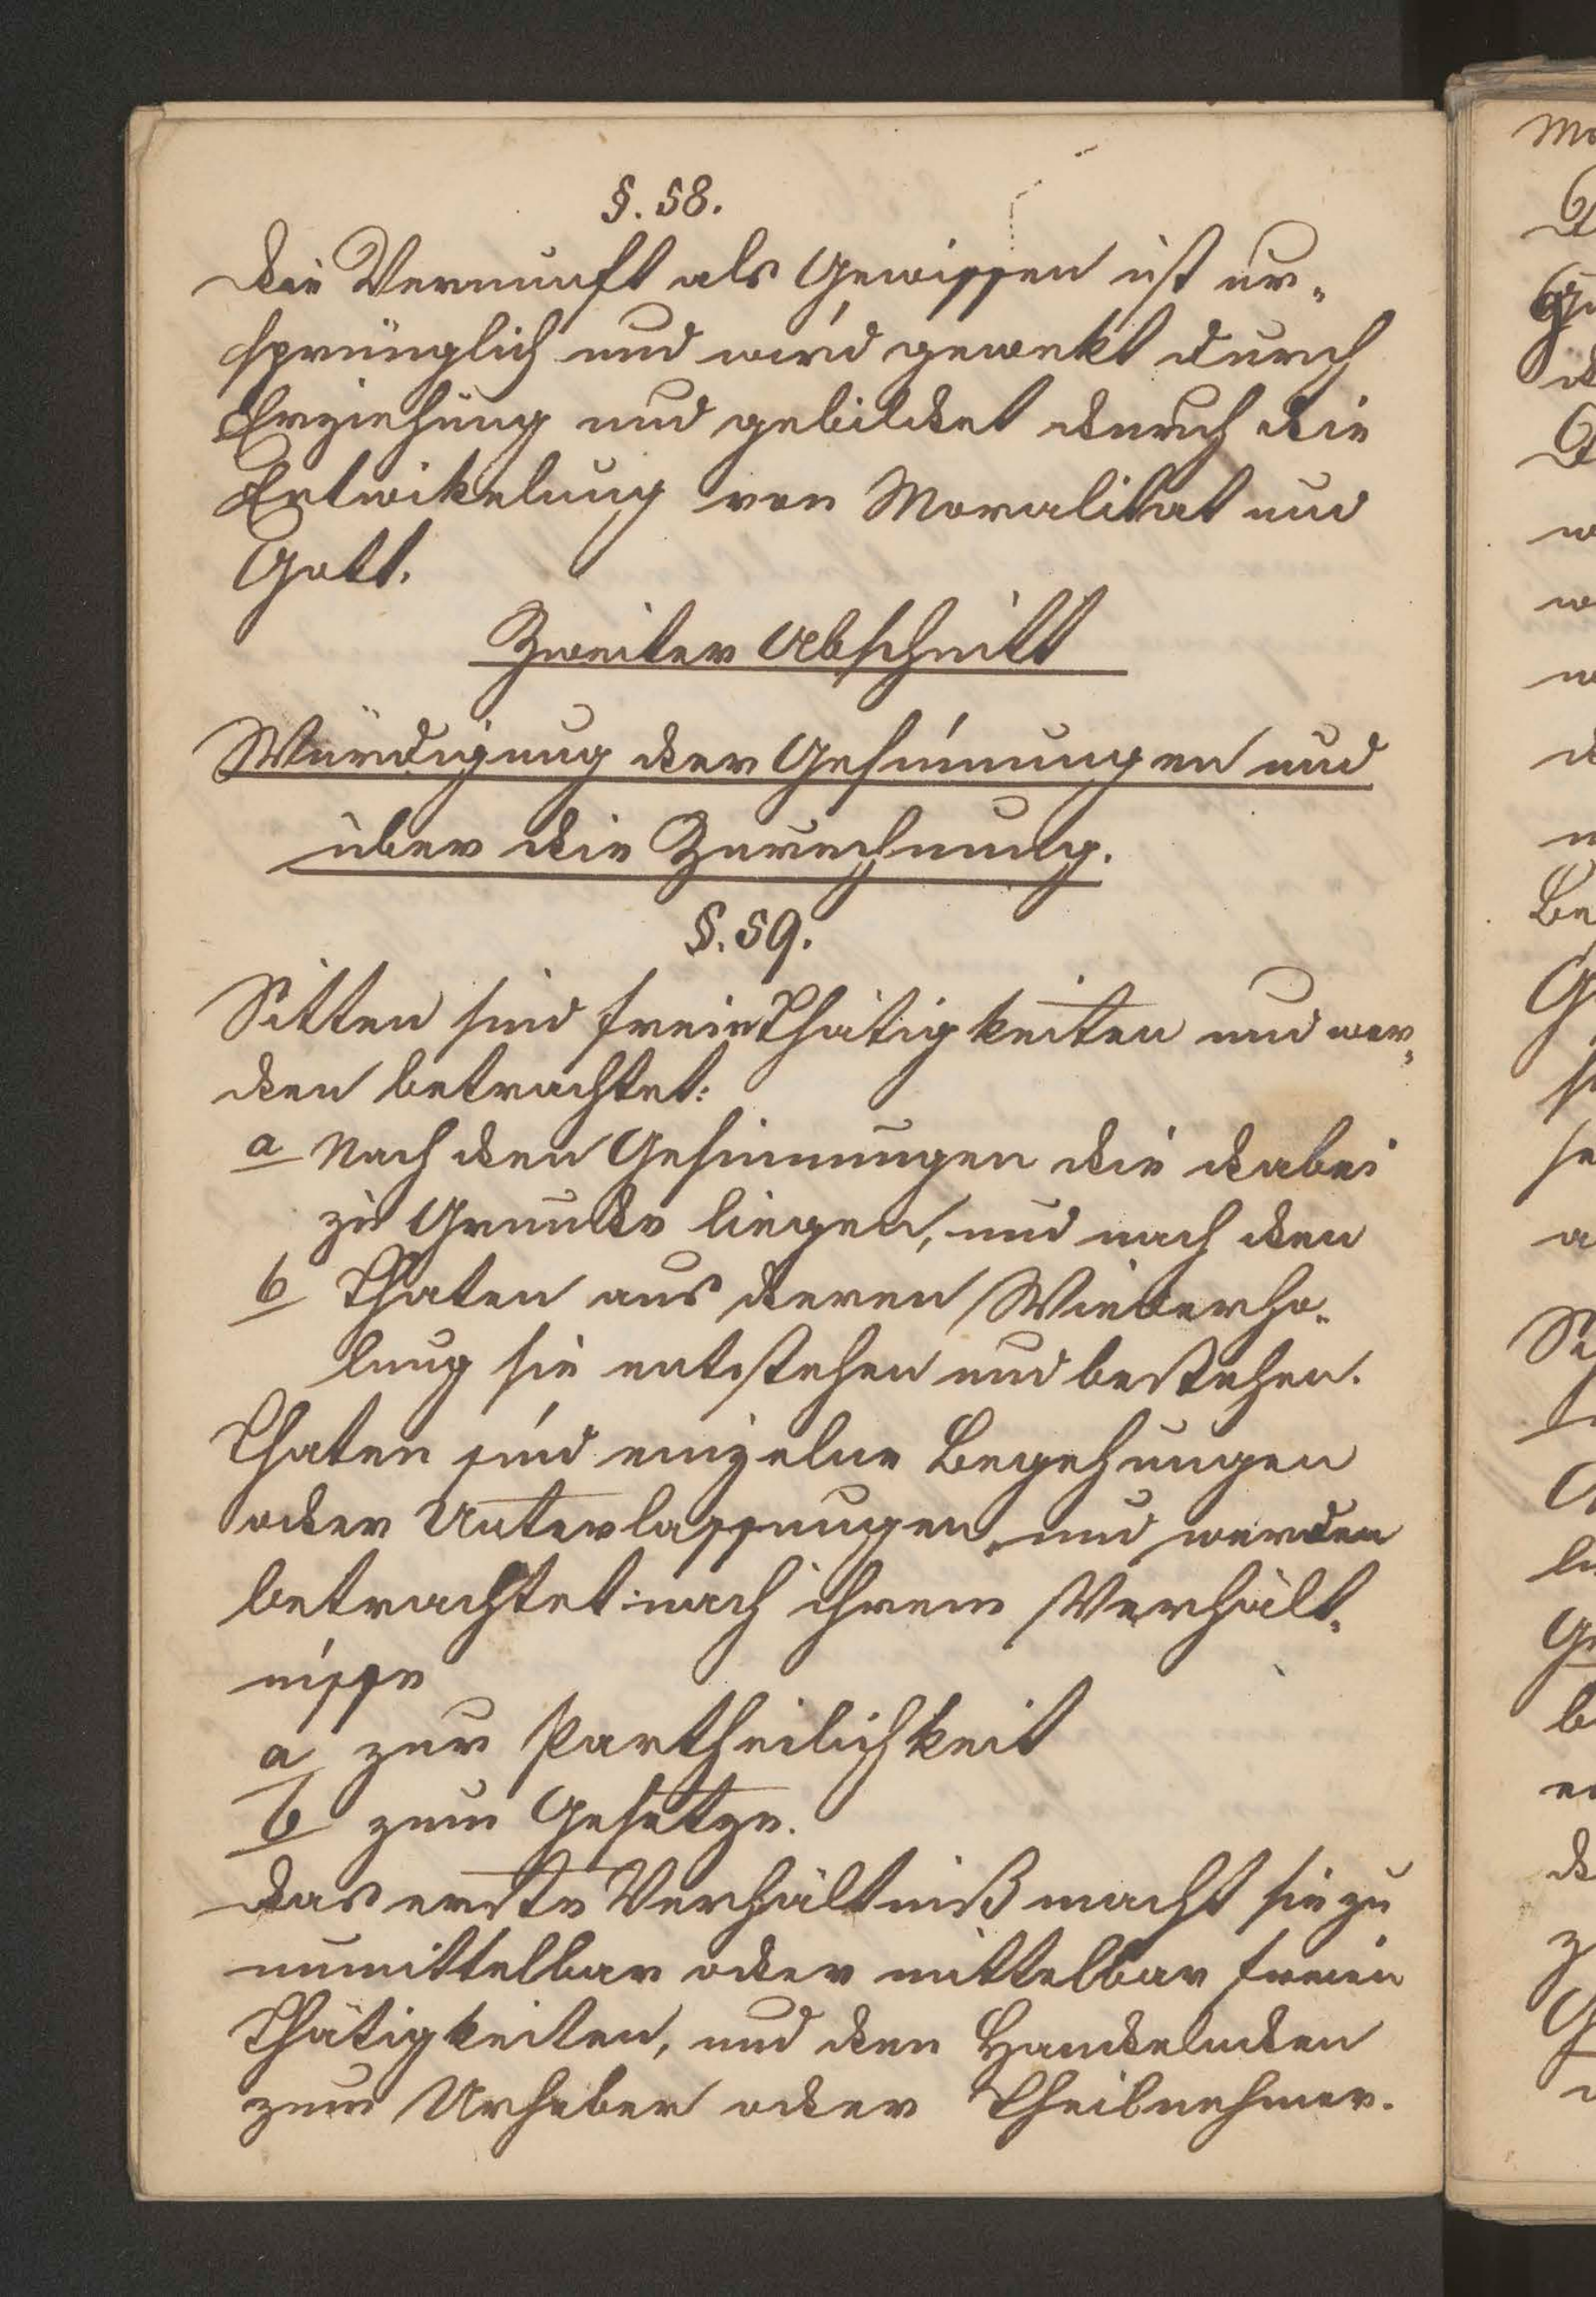 §. 58.
Die Vernunft als Gewissen ist ur-
sprünglich und wird gewekt durch
Erziehung und gebildet durch die
Entwikelung von Moralitat und
Gott.
Zweiter Abschnitt
Würdigung der Gesinnungen und
über die Zurechnung.
§. 59.
Sitten sind freie Thätigkeiten und wer-
den betrachtet:
a Nach den Gesinnungen die dabei
zu Grunde liegen, und nach den
b Thaten aus deren Wiederho-
lung sie entstehen und bestehen.
Thaten sind einzelne Begehungen
oder Unterlassungen, und werden
betrachtet nach ihrem Verhält-
nisse
a zur Partheilichkeit
b zum Gesetze.
Das erste Verhältniß macht sie zu
unmittelbar oder mittelbar freien
Thätigkeiten, und den Handelnden
zum Urheber oder Theilnehmer.